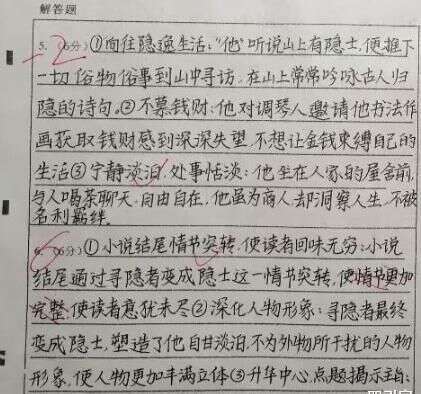 解答题
5. (6分) ①向往隐逸生活:“他”听说山上有隐士,便推下
-2
一切俗物俗事到山中寻访。在山上常常吟咏古人归
隐的诗句。②不慕钱财:他对调琴人邀请他书法作
画获取钱财感到深深失望,不想让金钱束缚自己的
生活③宁静淡泊,处事恬淡:他坐在人家的屋舍前,
与人喝茶聊天,自由自在,他虽为商人,却洞察人生,不被
名利羁绊。
6. (6分) ①小说结尾情节突转,使读者回味无穷:小说
结尾通过寻隐者变成隐士这一情节突转,使情节更加
完整,使读者意犹未尽②深化人物形象:寻隐者最终
变成隐士,塑造了他自甘淡泊,不为外物所干扰的人物
形象,使人物更加丰满立体③升华中心,点题:揭示主旨: